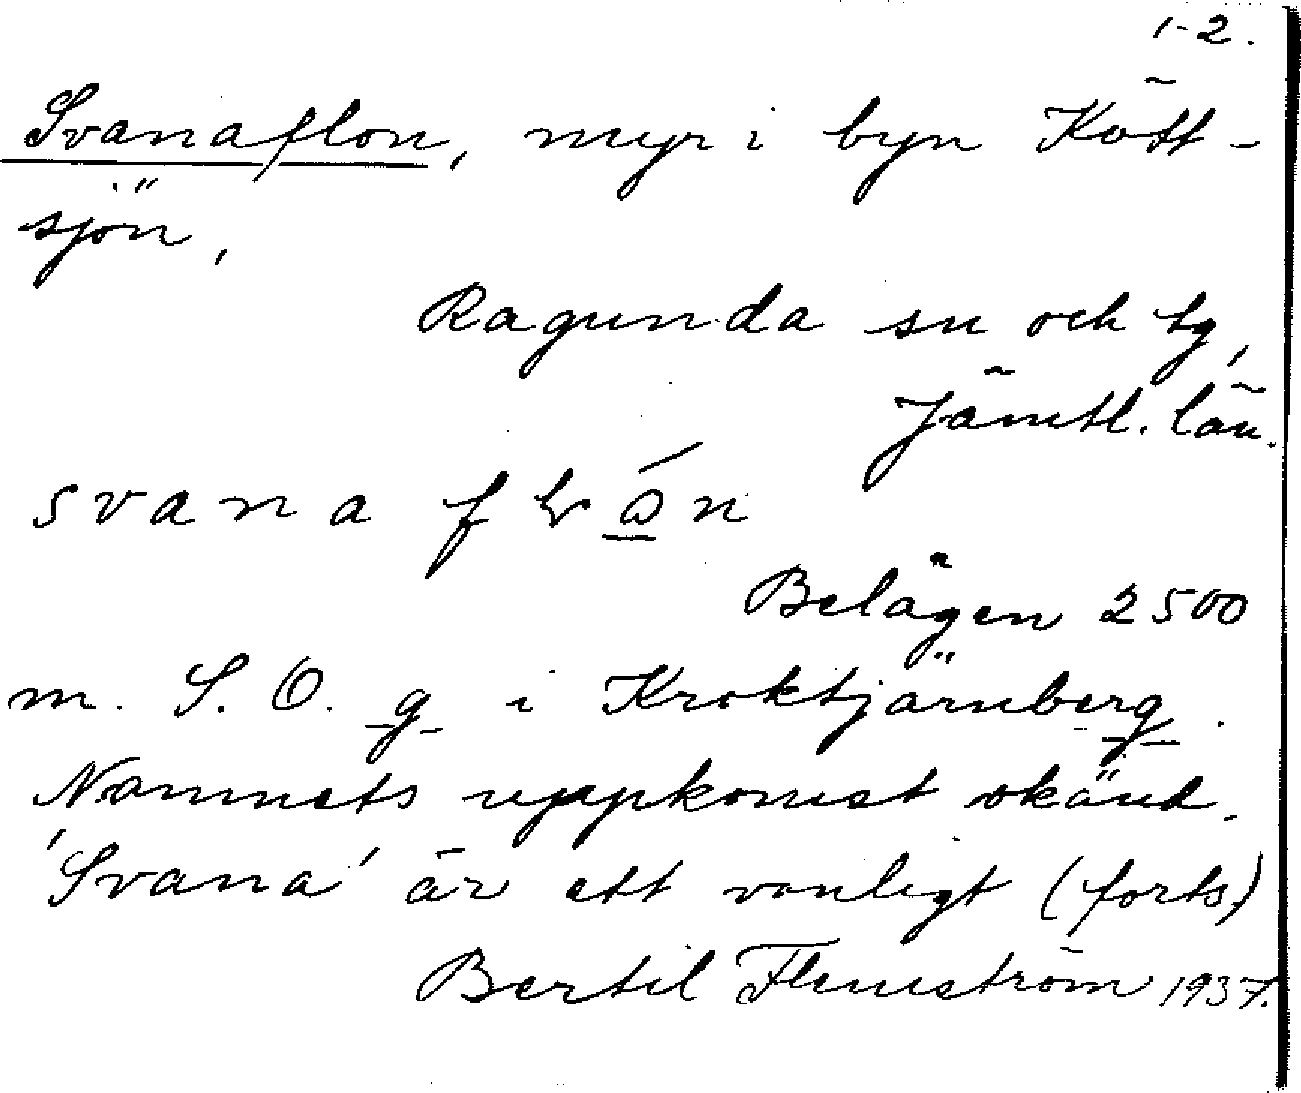 1-2.
Svanaflon, myr i byn Kött-
sjön,
Ragunda sn och tg,
Jämtl. län.
svana
Belägen 2500
m. S.O. g i Kroktjärnberg.
Namnets uppkomst okänd.
'Svana' är ett vanligt (forts)
Bertil Flemström 1937.